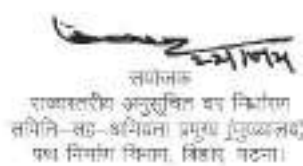 संयोजक
राज्यस्तरीय अनुसूचित दर निर्धारण
समिति-सह-अभियंता प्रमुख (मुख्यालय)
पथ निर्माण विभाग, बिहार पटना।